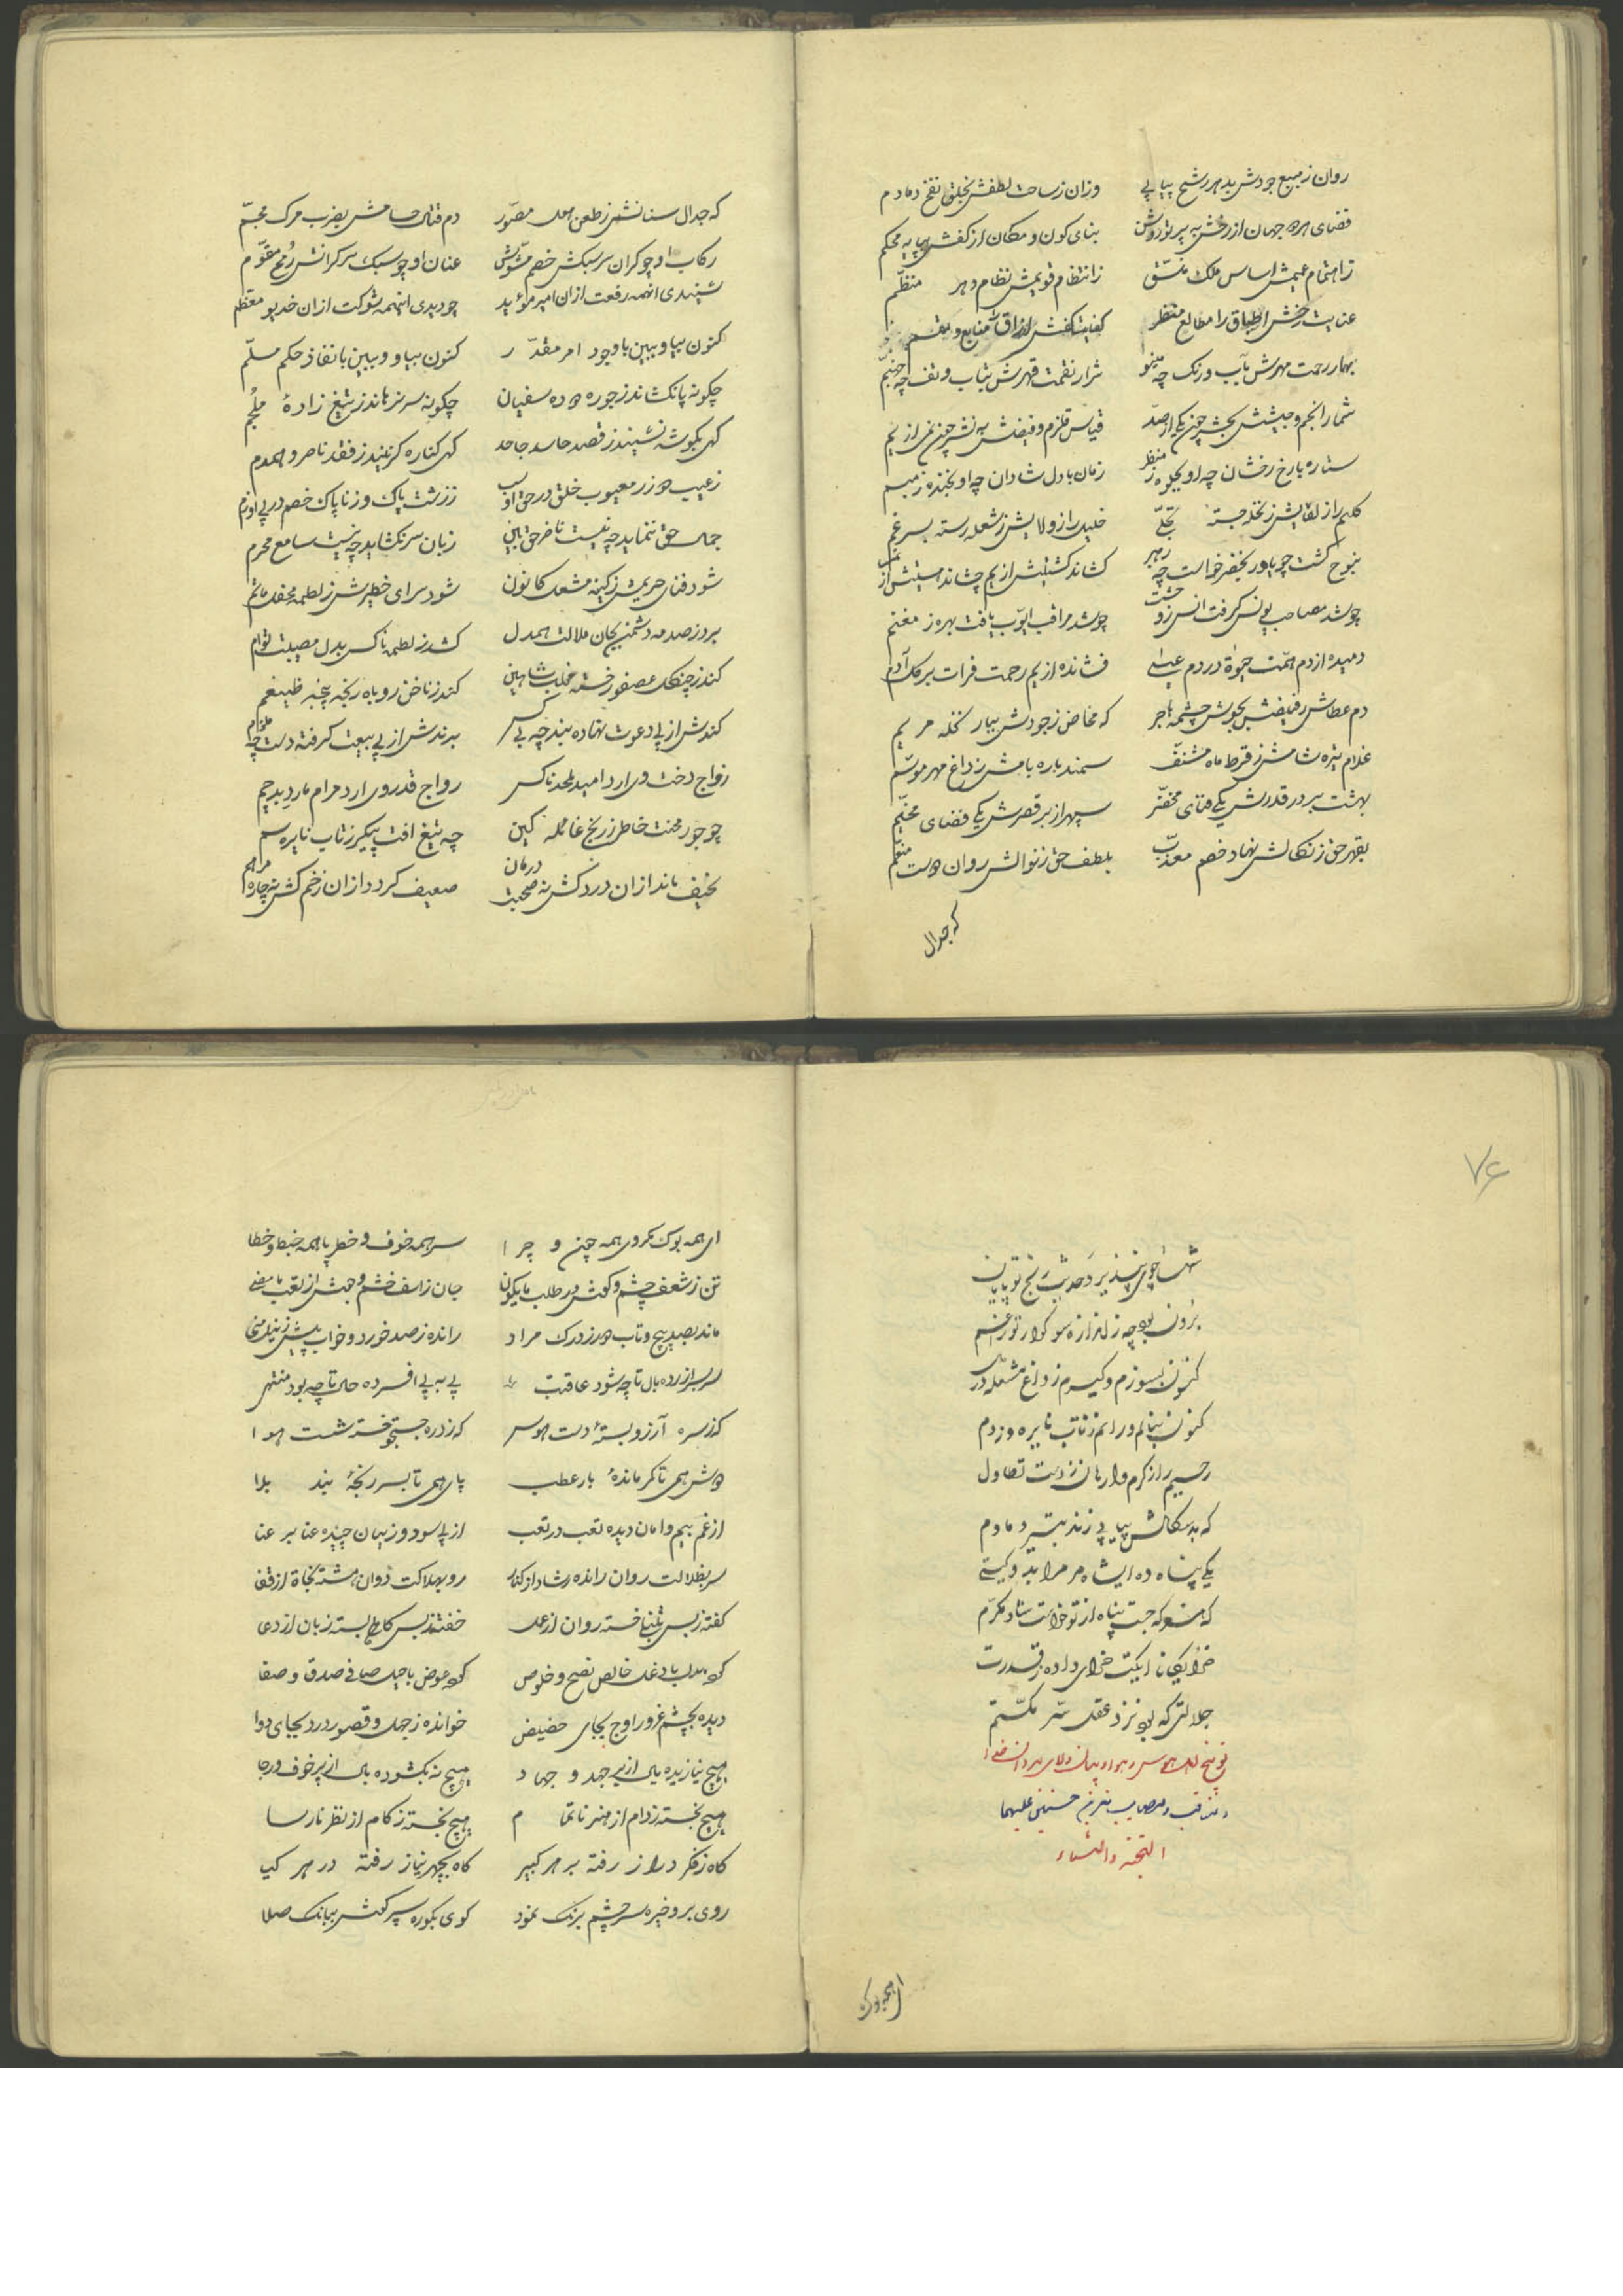 روان ز منبع جودش بدهر رشح پیاپی وزان ز ساحت لطفش بخلق نفخ دمادم
فضای هر جهان از رخش به پرتو روشن بنای کون و مکان از کفش بپایه محکم
ز اهتمام عمیمش اساس ملک منسّق ز انتظام قویمش نظام دهر منظّم
عنایت رخش اطباق را مطالع منظر کفایت کفش ارزاق را منابع و مقسم
بهار رحمت مهرش بآب و رنک چه مینو شرار نقمت قهرش بتاب و تف چه جهنّم
شمار انجم و جیشش بحشر چون یکی از صد قیاس قلزم و فیضش به نشر چون نمی از یم
ستاره با رخ رخشان چه او بجلوه ز منظر زمان با دل شادان چه او بخنده ز مبسم
کلیم را ز لقایش ز نخله جسته تجلّی خلیل را ز ولایش ز شعله رسته سپرغم
بنوح کشت چو یاور بخضر خواست چه رهبر کشاند کشتیش از یم چشاند مستیش از نم
چو شد مصاحب یونس کرفت انس ز وحشت چو شد مراقب ایّوب یافت بهره ز مغنم
دمیده از دم همّت حیوة در دم عیسی فشانده از یم رحمت فرات بر کل آدم
دم عطاش ز فیضش بجوش چشمه هاجر که مخاض ز جودش ببار نخله مریم
غلام تیره شامش ز قرط ماه مشنّف سمند باره بامش ز داغ مهر موسّم
بهشت بر در قدرش یکی فنای محقّر سپهر از بر قصرش یکی فضای مخیّم
بقهر حق ز نکالش نهاد خصم معذّب بلطف حق ز نوالش روان دوست منعّم
که جدال
که جدال سنانش ز طعن اجل مصوّر دم قتال حسامش بضرب مرک مجسّم
رکاب او چو کران سر سبکش خصم مشوّش عنان او چو سبک سر کرانش رُمح مقوّم
شنیدی انهمه رفعت از ان امیر مؤید چو دیدی اینهمه شوکت از ان خدیو معظّم
کنون بیا و ببین با وجود امر مقدّر کنون بیا و ببین با نفاذ حکم مسلّم
چکونه پا نکشاند ز جور دوده سفیان چکونه سر نرهاند ز تیغ زادهٔ ملجم
کهی بکوشه نشیند ز قصد حاسد جاحد کهی کناره کزیند ز فقد ناصر و همدم
جمال حق ننماید چه نیست ناظر حق بین زبان سر نکشاید چه نیست سامع محرم
شود فنای حریمش ز کینه مشعل کانون شود سرای خطیرش ز لطمه محفل ماتم
برد ز صدمه دشمن بجان ملالت همدل کشد ز لطمه ناکس بدل مصیبت توام
کند ز چنکل عصفور خسته مخلب شاهین کند ز ناخن روباه رنجه پنجه ضیغم
کندش از پی دعوت نهاده بند چه بی کس برندش از پی بیعت کرفته دست چه ملزم
زواج دخت وی ارد امید ملحد ناکس رواج قدر وی ارد مرام مارد بدرحم
چو جور محنت خاطر ز رنج غائله کین چه تیغ افت پیکر ز تاب نایره سم
نحیف ماند از ان درد کش نه صحبت درمان ضعیف کردد از ان زخم کش نه چاره مرهم
۷۶
شها چو می نپذیرد حدیث رنج تو پایان
برون بود چه ز اندازه سوکوار تو را غم
کنون بسوزم و کیرم ز داغ مشعله در دل
کنون بنالم و رانم ز تاب نایره وز دم
رحیم را ز کرم وارهان ز دست تطاول
که بدسکالش پیاپی زند بتیر دمادم
یکی پناه ده ایشاه مر مرا بدو کیتی
که هر که جست پناه از تو خواست شاد و مکرّم
خدایکانا ایکت خدای داده ز قدرت
جلالتی که بود نزد عقل سرّ مکتّم
توبیخ اهل هوس و هوا و بیان ولای مردان خدا
و مناقب و مصایب حضرت حسنین علیهما
التحیّة والثناء
ای همه بوک
ای همه بوک و مکر وی همه چون و چرا سر همه خوف و خطر پا همه خبط و خطا
تن ز شعف چشم و کوش در طلب ما یکون جان ز اسف خشم و جوش از تعب ما مضی
مانده بصد پیچ و تاب در ز درک مراد رانده ز صد خورد و خواب پیش ز نیل منی
سر بسر ازرده بال تا چه شود عاقبت پی به پی افسرده حال تا چه بود منتهی
که ز سره آرزو بستهٔ دست هوس که ز دره جستجو خسته شست هوا
دوش همی تا کمر ماندهٔ بار عطب پای همی تا بسر رنجهٔ بند بلا
از غم بیم و امان دیده تعب در تعب از پی سود و زیان چیده عنا بر عنا
سر بضلالت روان رانده رشاد از کنار رو بهلاکت دوان هشته نجاة از قفا
کفته ز بس تنبلی خسته روان از عمل خفته ز بس کاهلی بسته زبان از دعا
که بدل با دغل خالص نصح و خلوص که عوض با حیل صافی صدق و صفا
دیده بچشم غرور اوج بجای حضیض خوانده ز جهل و قصور درد بجای دوا
هیچ نیازیده یال از پی جهد و جهاد هیچ نه بکشوده بال از پر خوف و رجا
هیچ نجسته ز دام از هنر ناتمام هیچ نخسته ز کام از نظر نارسا
کاه ز فکر دراز رفته بر هر کبیر کاه بچهر نیاز رفته در هر کیا
روی بر و خیره سر چشم برنک نمود کوی بکوره سپر کوش ببانک صلا